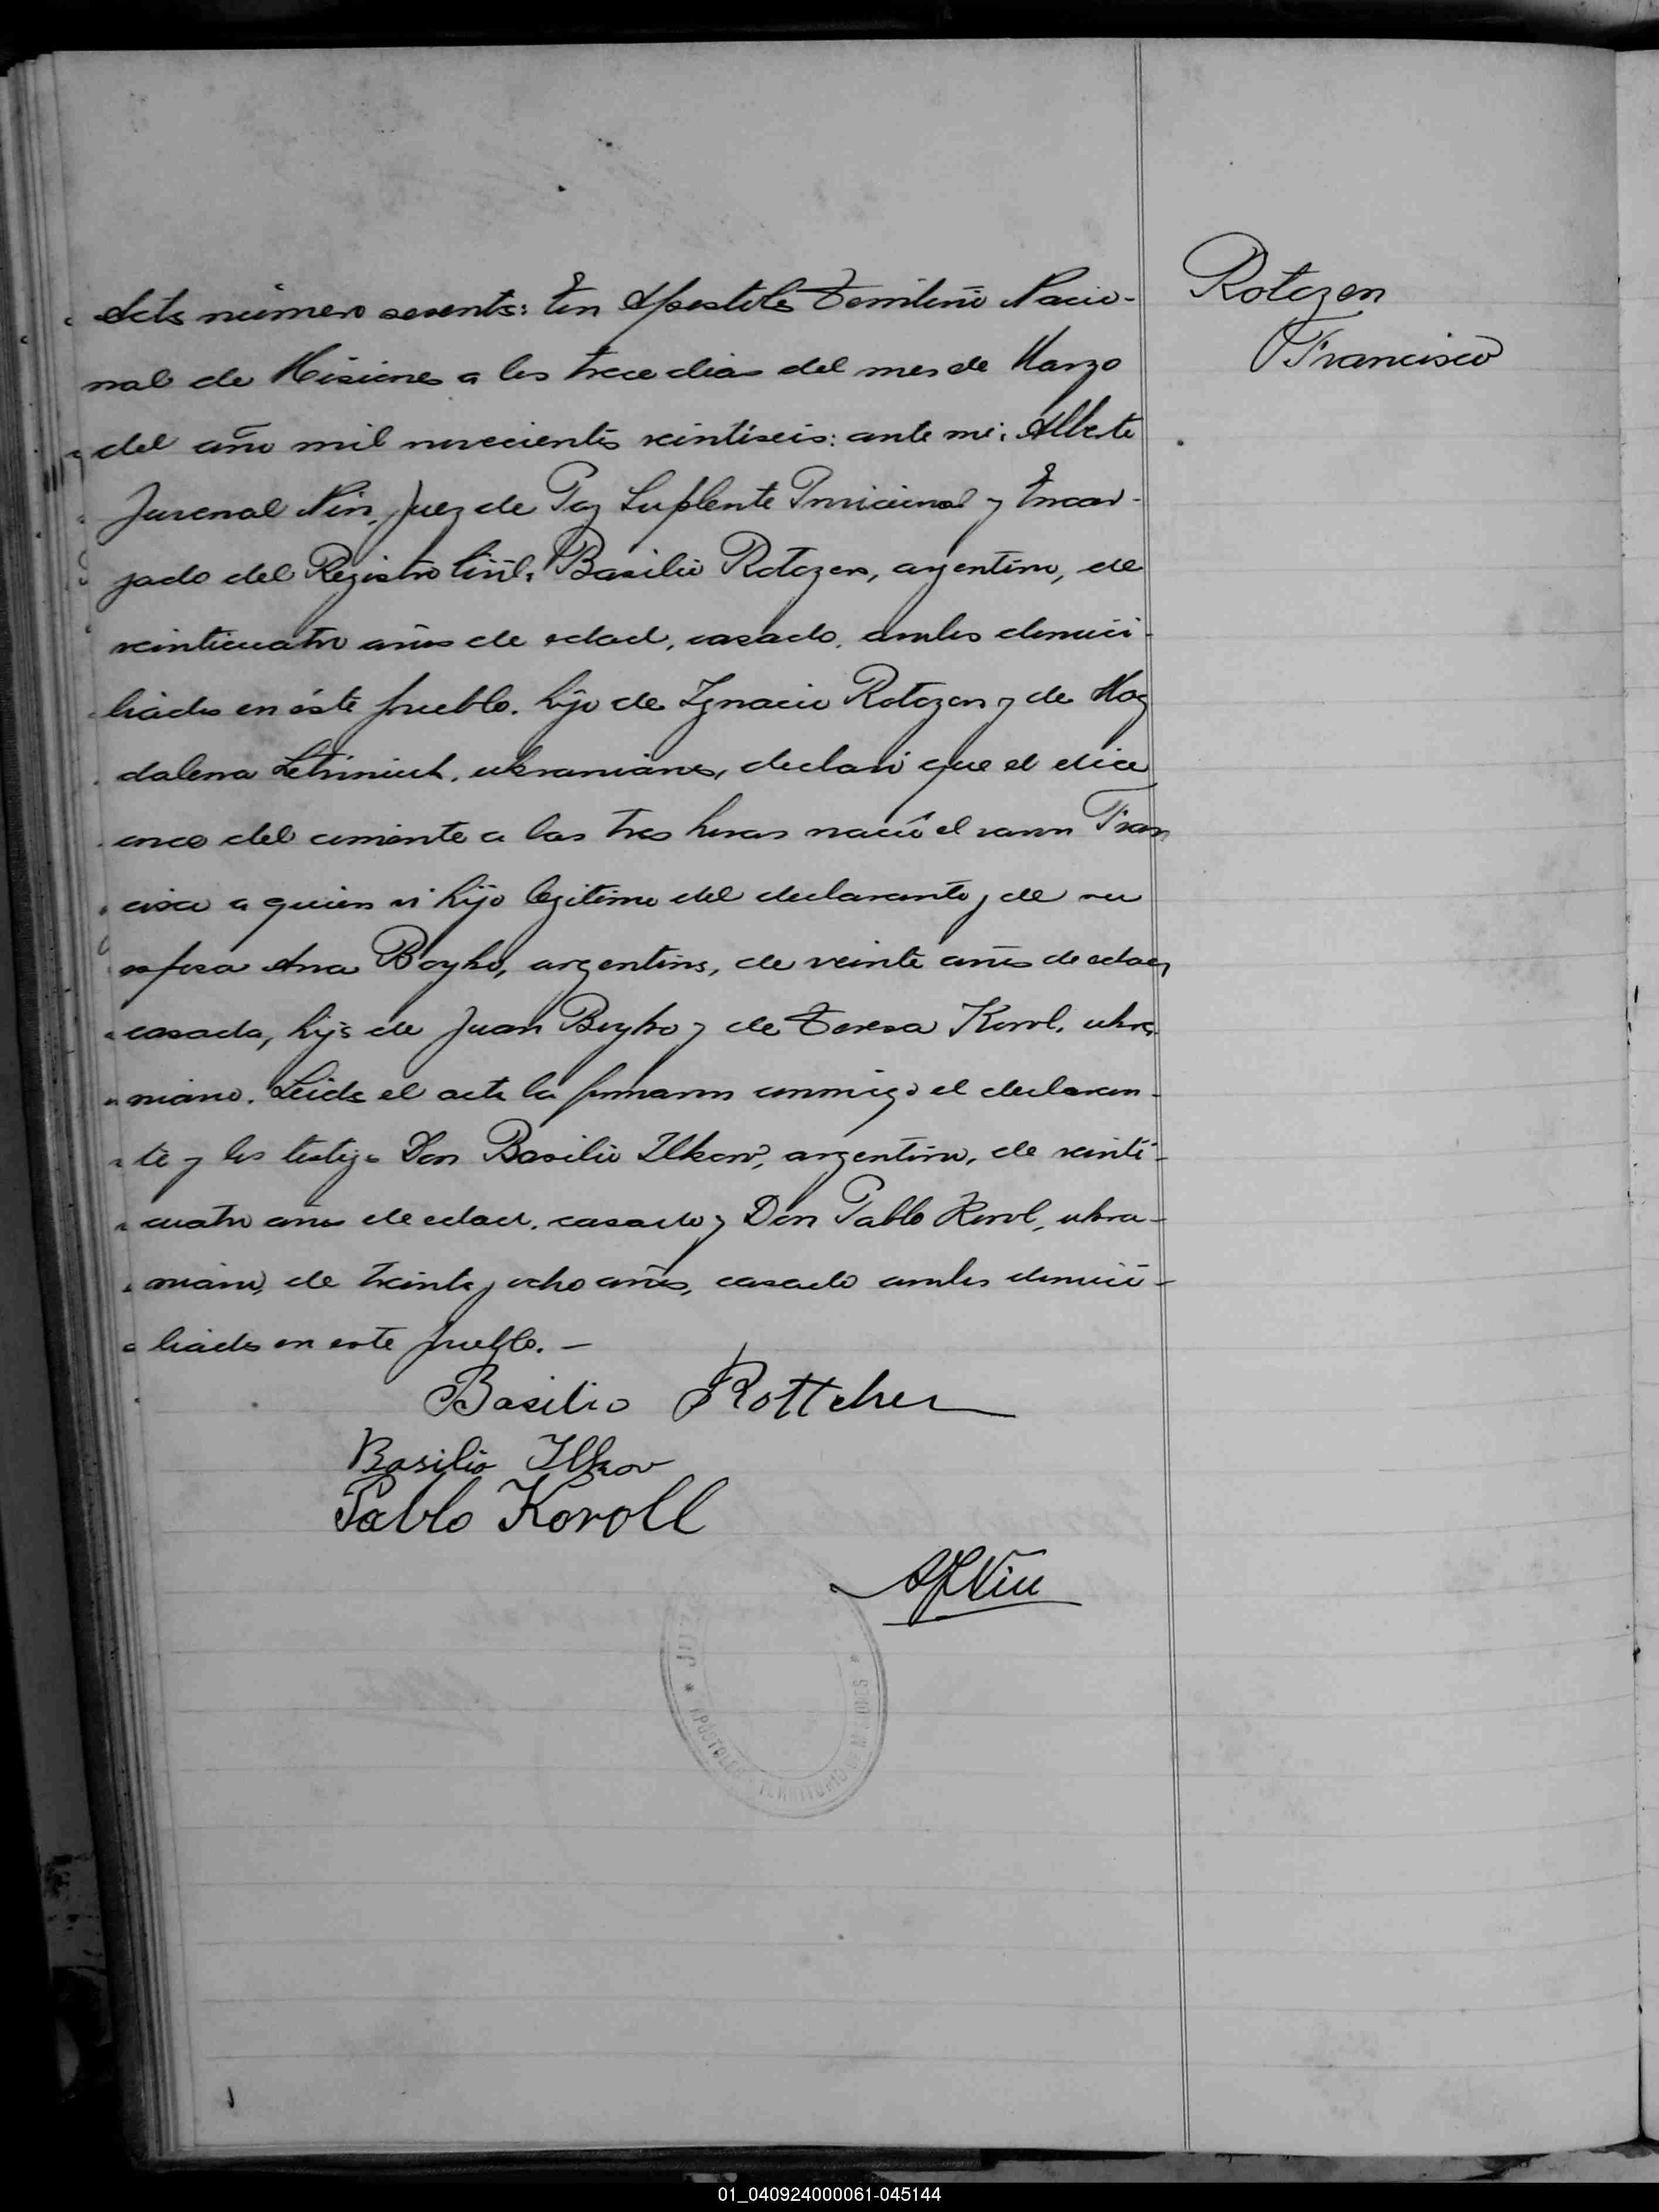 Rotczen
Francisco
Acta número sesenta: En Apostoles Territorio Nacio-
nal de Misiones a los trece dias del mes de Marzo
del año mil novecientos veintiseis: ante mi: Alberto
Juvenal Nin, Juez de Paz Suplente Provicional y Encar-
gado del Registro Civil, Basilio Rotczen, argentino, de
veinticuatro años de edad, casado, ambos domici-
liados en éste pueblo, hijo de Ignacio Rotczen y de Mag
dalena ukranianos, declaró que el dia
once del corriente a las tres horas nació el varon Fran
cisco a quien vi hijo legitimo del declarante y de su
esposa Ana Boyko, argentina, de veinte años de edad,
casada, hija de Juan Boyko y de Teresa Korol, ukra
niano. Leida el acta la firmaron conmigo el declaran-
te y los testigos Don Basilio Ilkow, argentino, de veinti-
cuatro años de edad, casado y Don Pablo Korol, ukra-
niano, de treinta y ocho años, casado ambos domici-
liados en este pueblo. —
Basilio Rottcher
Basilio Ilkow
Pablo Koroll
AJNin
JUZ
* APOSTOLES - TERRITORIO DE MISIONES *
01_040924000061-045144